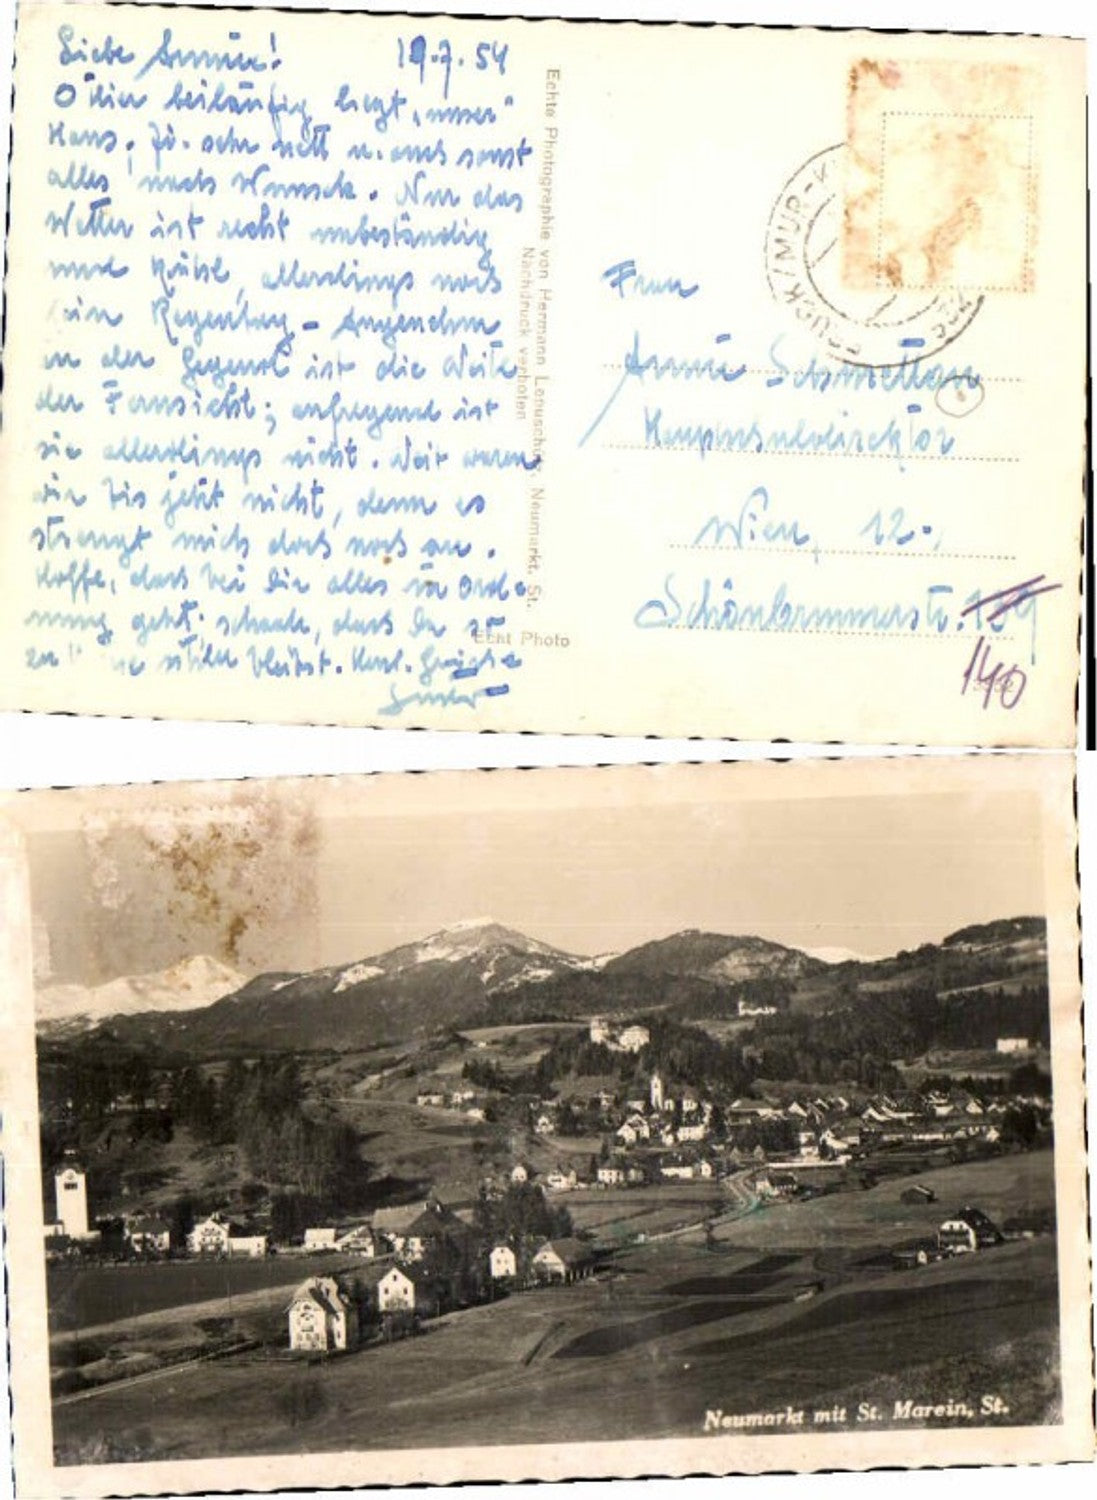 Liebe Annie! 19.7.54
O hier beiläufig liegt „unser"
Haus, ist sehr nett u. auch sonst
alles nach Wunsch. Nur das
Wetter ist recht unbeständig
und kühl, allerdings noch
kein Regentag - Angenehm
in der Gegend ist die Weite
der Fernsicht; aufregend ist
sie allerdings nicht. Weit waren
wir bis jetzt nicht, denn es
strengt mich doch noch an.
Hoffe, dass bei Dir alles in Ord-
nung geht; schaue, dass Du
bleibst. Herzl. Grüsse
Echte Photographie von Hermann Neumarkt, St.
Nachdruck verboten
Echt Photo
BRUCK/MUR-
Frau
Annie
Wien, 12.,
Schönbrunnerstr. 139
140
Neumarkt mit St. Marein, St.